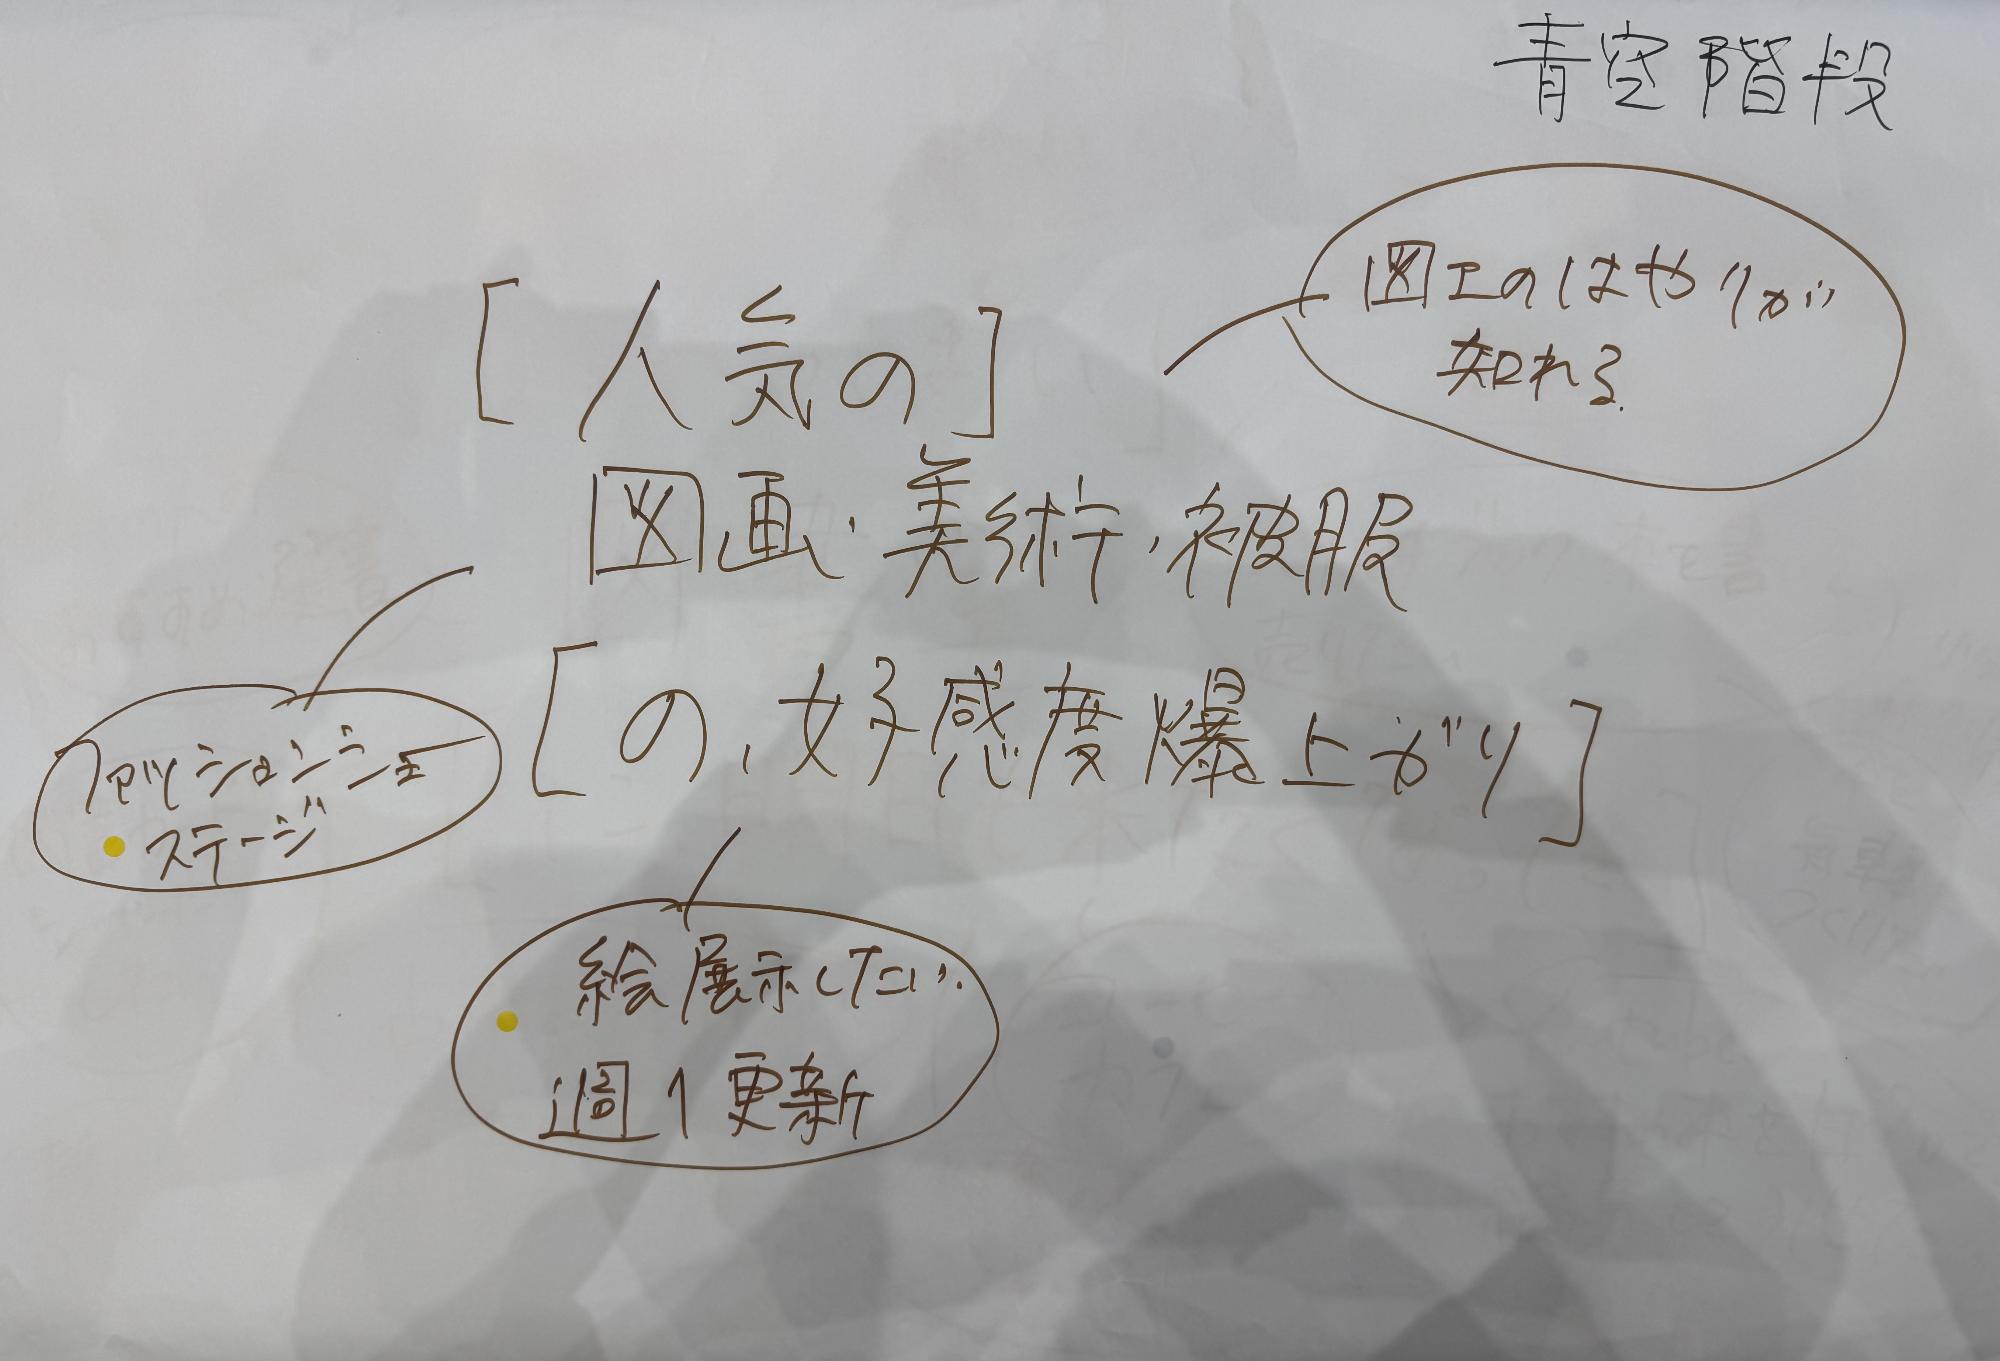 青空階段
[人気の]
図工のはやりが
知れる.
図画・美術・被服
[の、好感度爆上がり]
ファッションショー
ステージ
絵展示したい.
週1更新